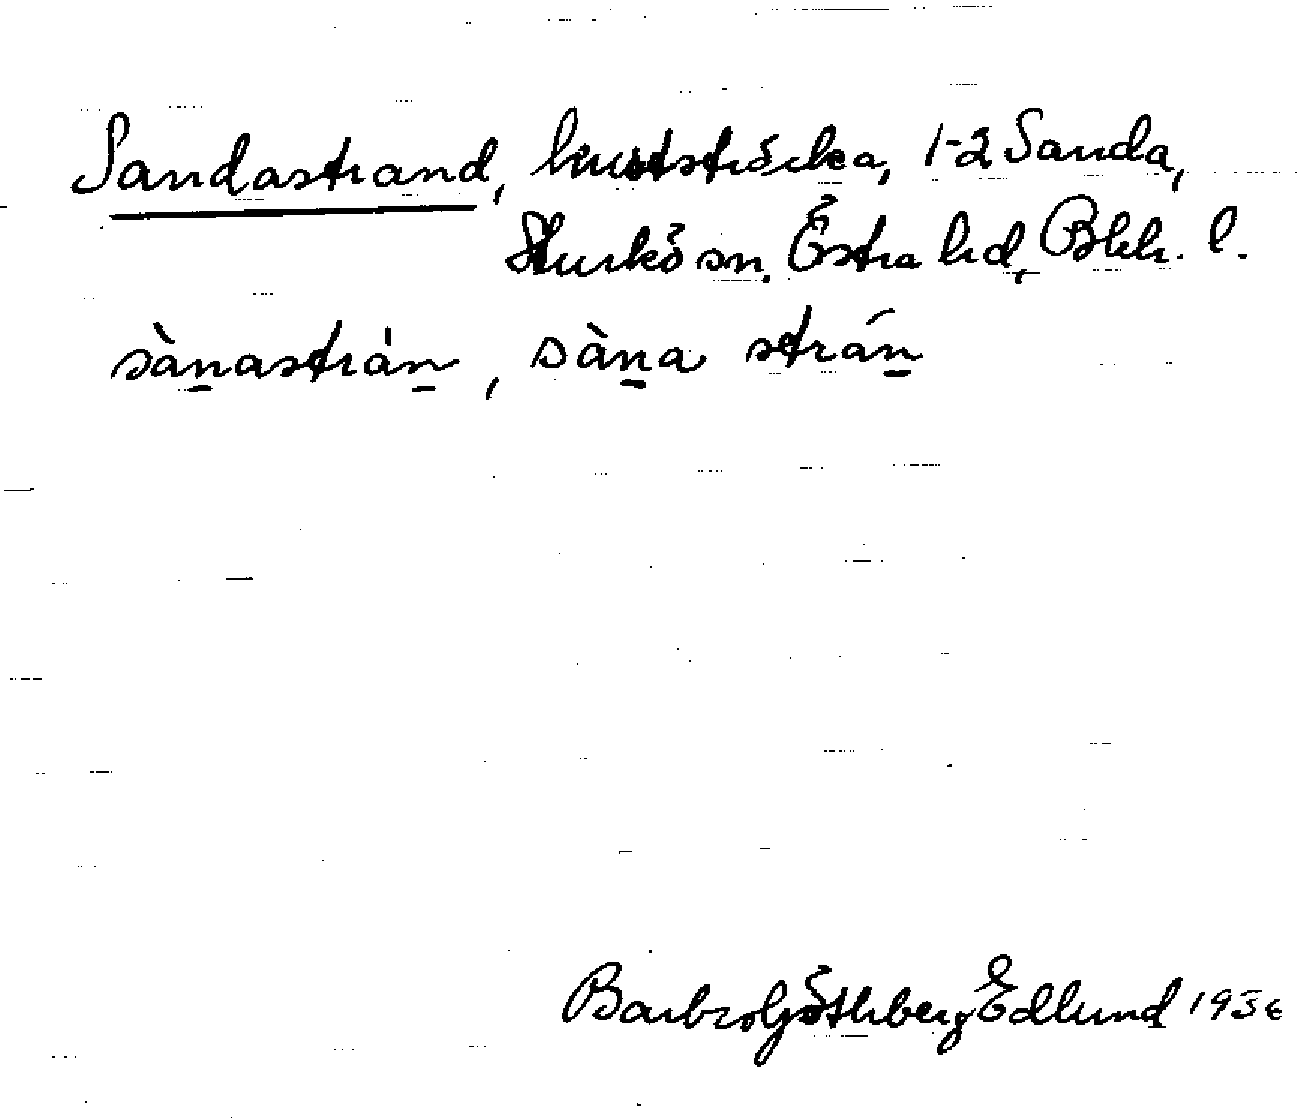 Sandastrand, kuststräcka, 1-2 Sanda,
Sturkö sn. Östra hd, Blek. l.
sàn̲astrán̲, sàn̲a strán̲
Barbro Göthberg Edlund 1956